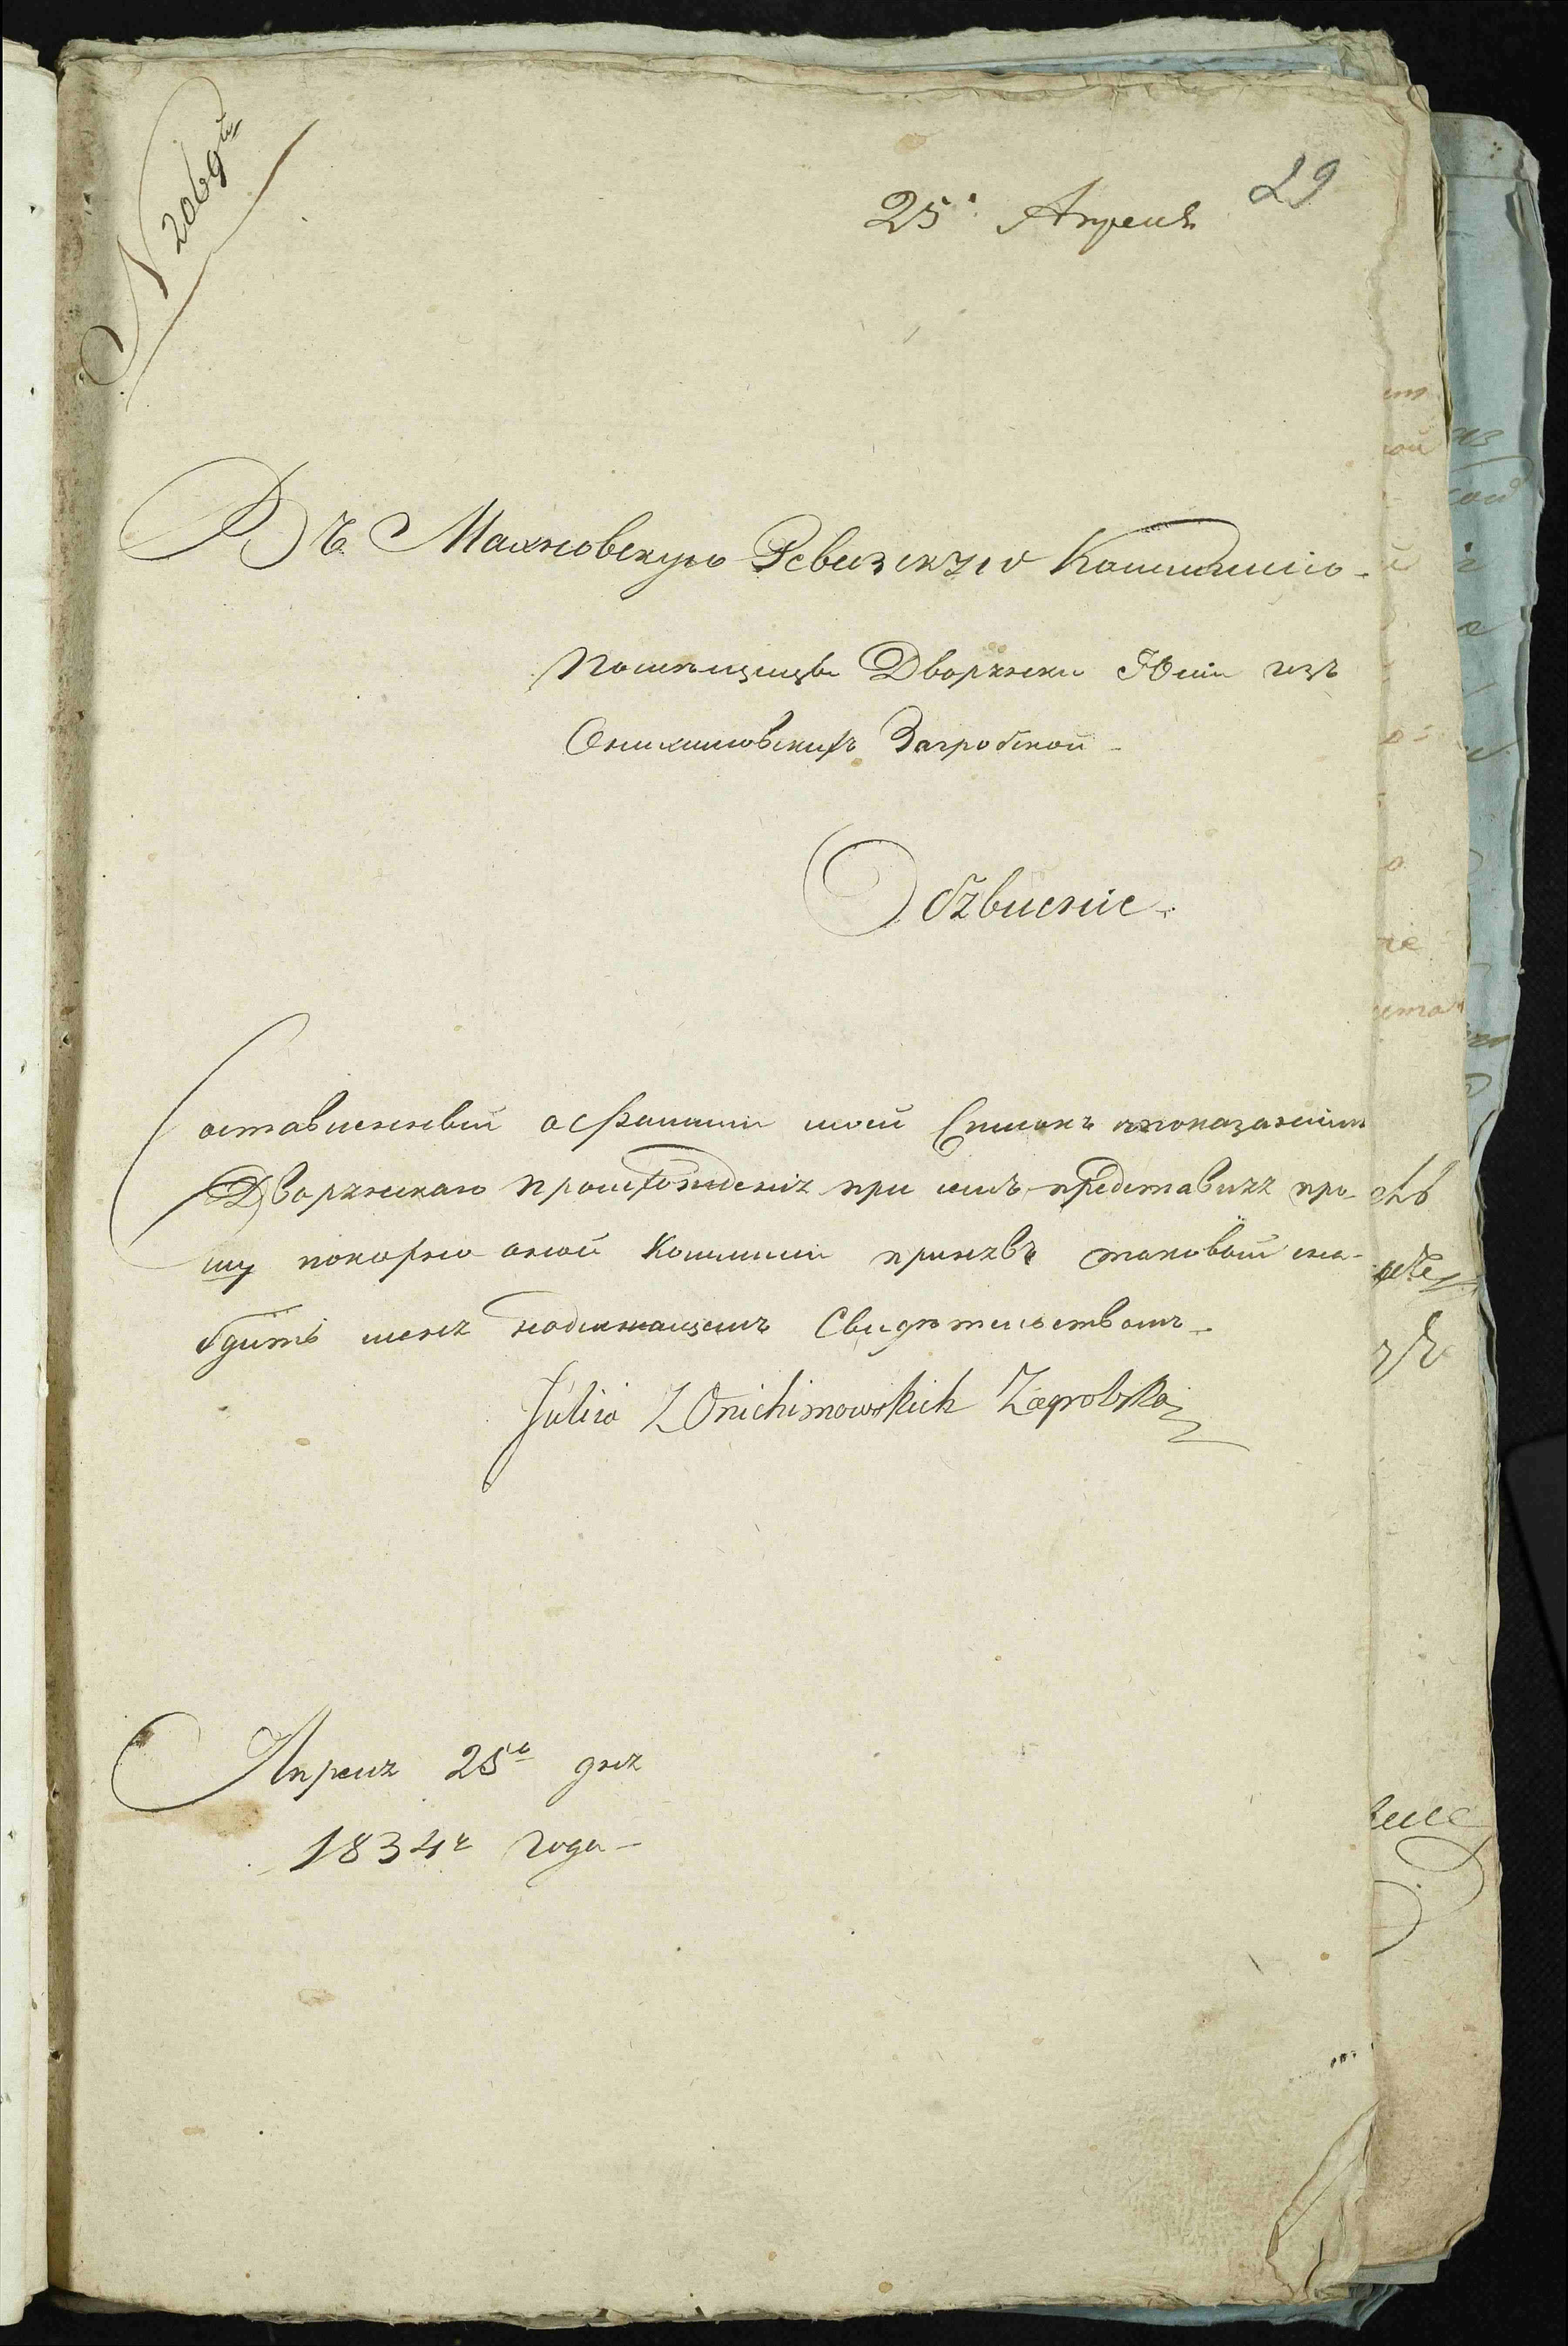 N 2069й
29
25 Апреля
Въ Махновскую Ревизскую Коммисію
Помѣщицы Дворянки Юліи изъ
Онихимовскихъ Загробской
Объявленіе
Составленный о фамиліи моей Списокъ о показаніимъ
Дворянскаго происхожденія при семъ представляя про-
шу покорно оной Коммисіи принявъ таковый сна-
бдить меня надлежащемъ Свидѣтельствомъ
Julia Z Onichimowskich Zagrobska
Апреля 25го дня
1834г года